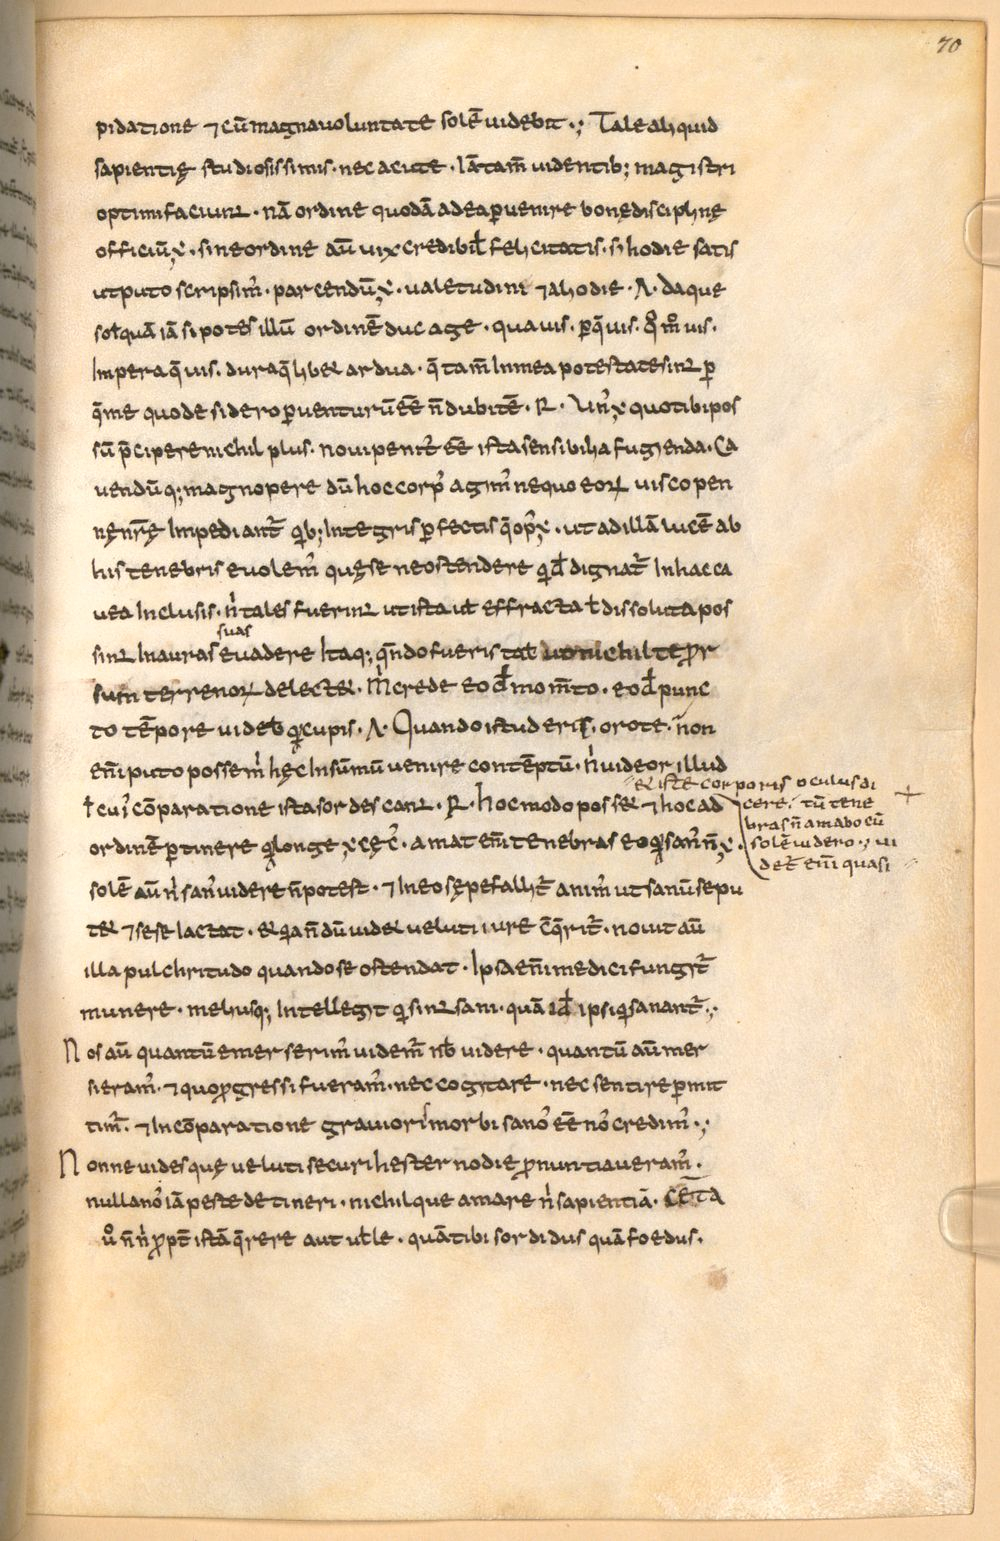 70
pidatione & cū magna uoluntate solē uidebit·; Tale aliquid
sapientię studiosissimis· nec acute· lātam̄ uidentib; magistri
optimi faciunt· nā ordine quodā ad ea ꝑuenire bonę disciplinę
officiū; x· sine ordine aū uix credibil felicitatis· si hodie satis
ut puto scripsim̄· parcendū; x· ualetudini & alio die· A· Daque
sol quā iā si potes illū ordinē duc age· qua uis· ꝑ q̄ uis· quom̊ uis·
Impera q̄ uis· dura q̄ libet ardua· q̄ tam̄ In mea potestate sint ꝑ
q̄ me quo desidero ꝑuenturū ēē n̄ dubitē· R· Unꝰ x quo tibi pos
sū p̄cipere nichil plus· noui penit᾽ ēē ista sensibilia fugienda· Ca
uendūq; magnopere dū hoc corpꝰ agimꝰ ne quo eoꝝ uisco pen
nę nr̄ę Impediant᾽ qib; Integris ꝑfectisq̄ opꝰ; x· ut ad illā lucē ab
his tenebris euolemꝰ quę se ne ostendere qid̄ dignat᾽ In hac ca
uea Inclusis· nⁱ tales fuerint ut ista uel effracta ł dissoluta pos
suas
sint In auras euadere Itaq; q̄ndo fueris tal ut nichil te ꝓr
sum terrenoꝝ delectet· mⁱ crede eod̄ momto· eod̄ punc
to tēpore uideb qi cupis· A· Quando istud eris· oro te· n̄ on
em̄i puto posse mⁱ hęc In sūmū uenire contēptū· nⁱ uideor illud
ł cuiꝰ cōparatione ista sordescant· R· hoc modo posset & hoc ad
& iste corporis oculus di
cere· tū tene
bras n̄ amabo cū
solē uidero·; ui
det᾽ em̄i quasi
ordinē ꝑtinere qi longe x cęcꝰ· amat em̄i tenebras eo qi sanꝰ n̄ x·
solē aū nⁱ sanꝰ uidere n̄ potest· & In eo sępe fallit᾽ animꝰ ut sanū se pu
tet & sese lactat· et qia n̄dū uidet ueluti iure cq̄rit᾽· nouit aū
illa pulchritudo quando se ostendat· Ipsa em̄i medici fungit᾽
munere· meliusq; Intellegit qi sint sani· quā id̄ ipsi qi sanant᾽·;
Nos aū quantū emerserimꝰ uidem̄ nb̄ uidere· quantū aū mer
sieramꝰ· & quo ꝓgressi fueramꝰ· nec cogitare· nec sentire ꝑmit
timꝰ· & In cōparatione grauiorⁱ morbi sanoꝰ ēē noꝰ credimꝰ·;
Nonne uides quę ueluti securi hesterno die ꝓnuntiaueramꝰ·
nulla noꝰ iā peste detineri· nichilque amare nⁱ sapientiā· Cētā
u̇ n̄ nⁱ ꝓpt᾽ istā q̄rere aut uelle· quā tibi sordidus quā foedus·